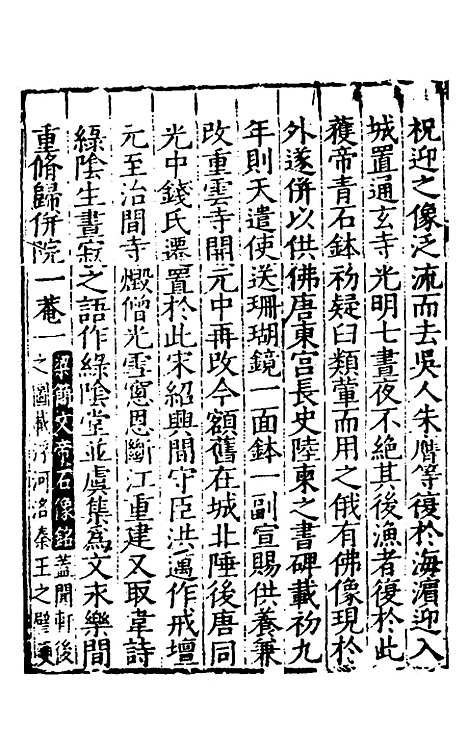 祝迎之像泛流而去吳人朱膺等復於海濵迎入
城置通玄寺光明七晝夜不絶其後漁者復於此
穫帝青石鉢初疑臼類葷而用之俄有佛像現於
外遂併以供佛唐東宫長史陸柬之書碑載初九
年則天遣使送珊瑚鏡一面鉢一副宣賜供養兼
改重雲寺開元中再改今額舊在城北陲後唐同
光中錢氏遷置於此宋紹興間守臣洪遵作戒壇
元至治間寺燬僧光雪窻恩斷江重建又取韋詩
綠陰生晝寂之語作綠陰堂並虞集為文永樂間
重脩歸併院一菴一
梁簡文帝石像銘盖聞軒後
之圖載浮河洛秦王之璧更